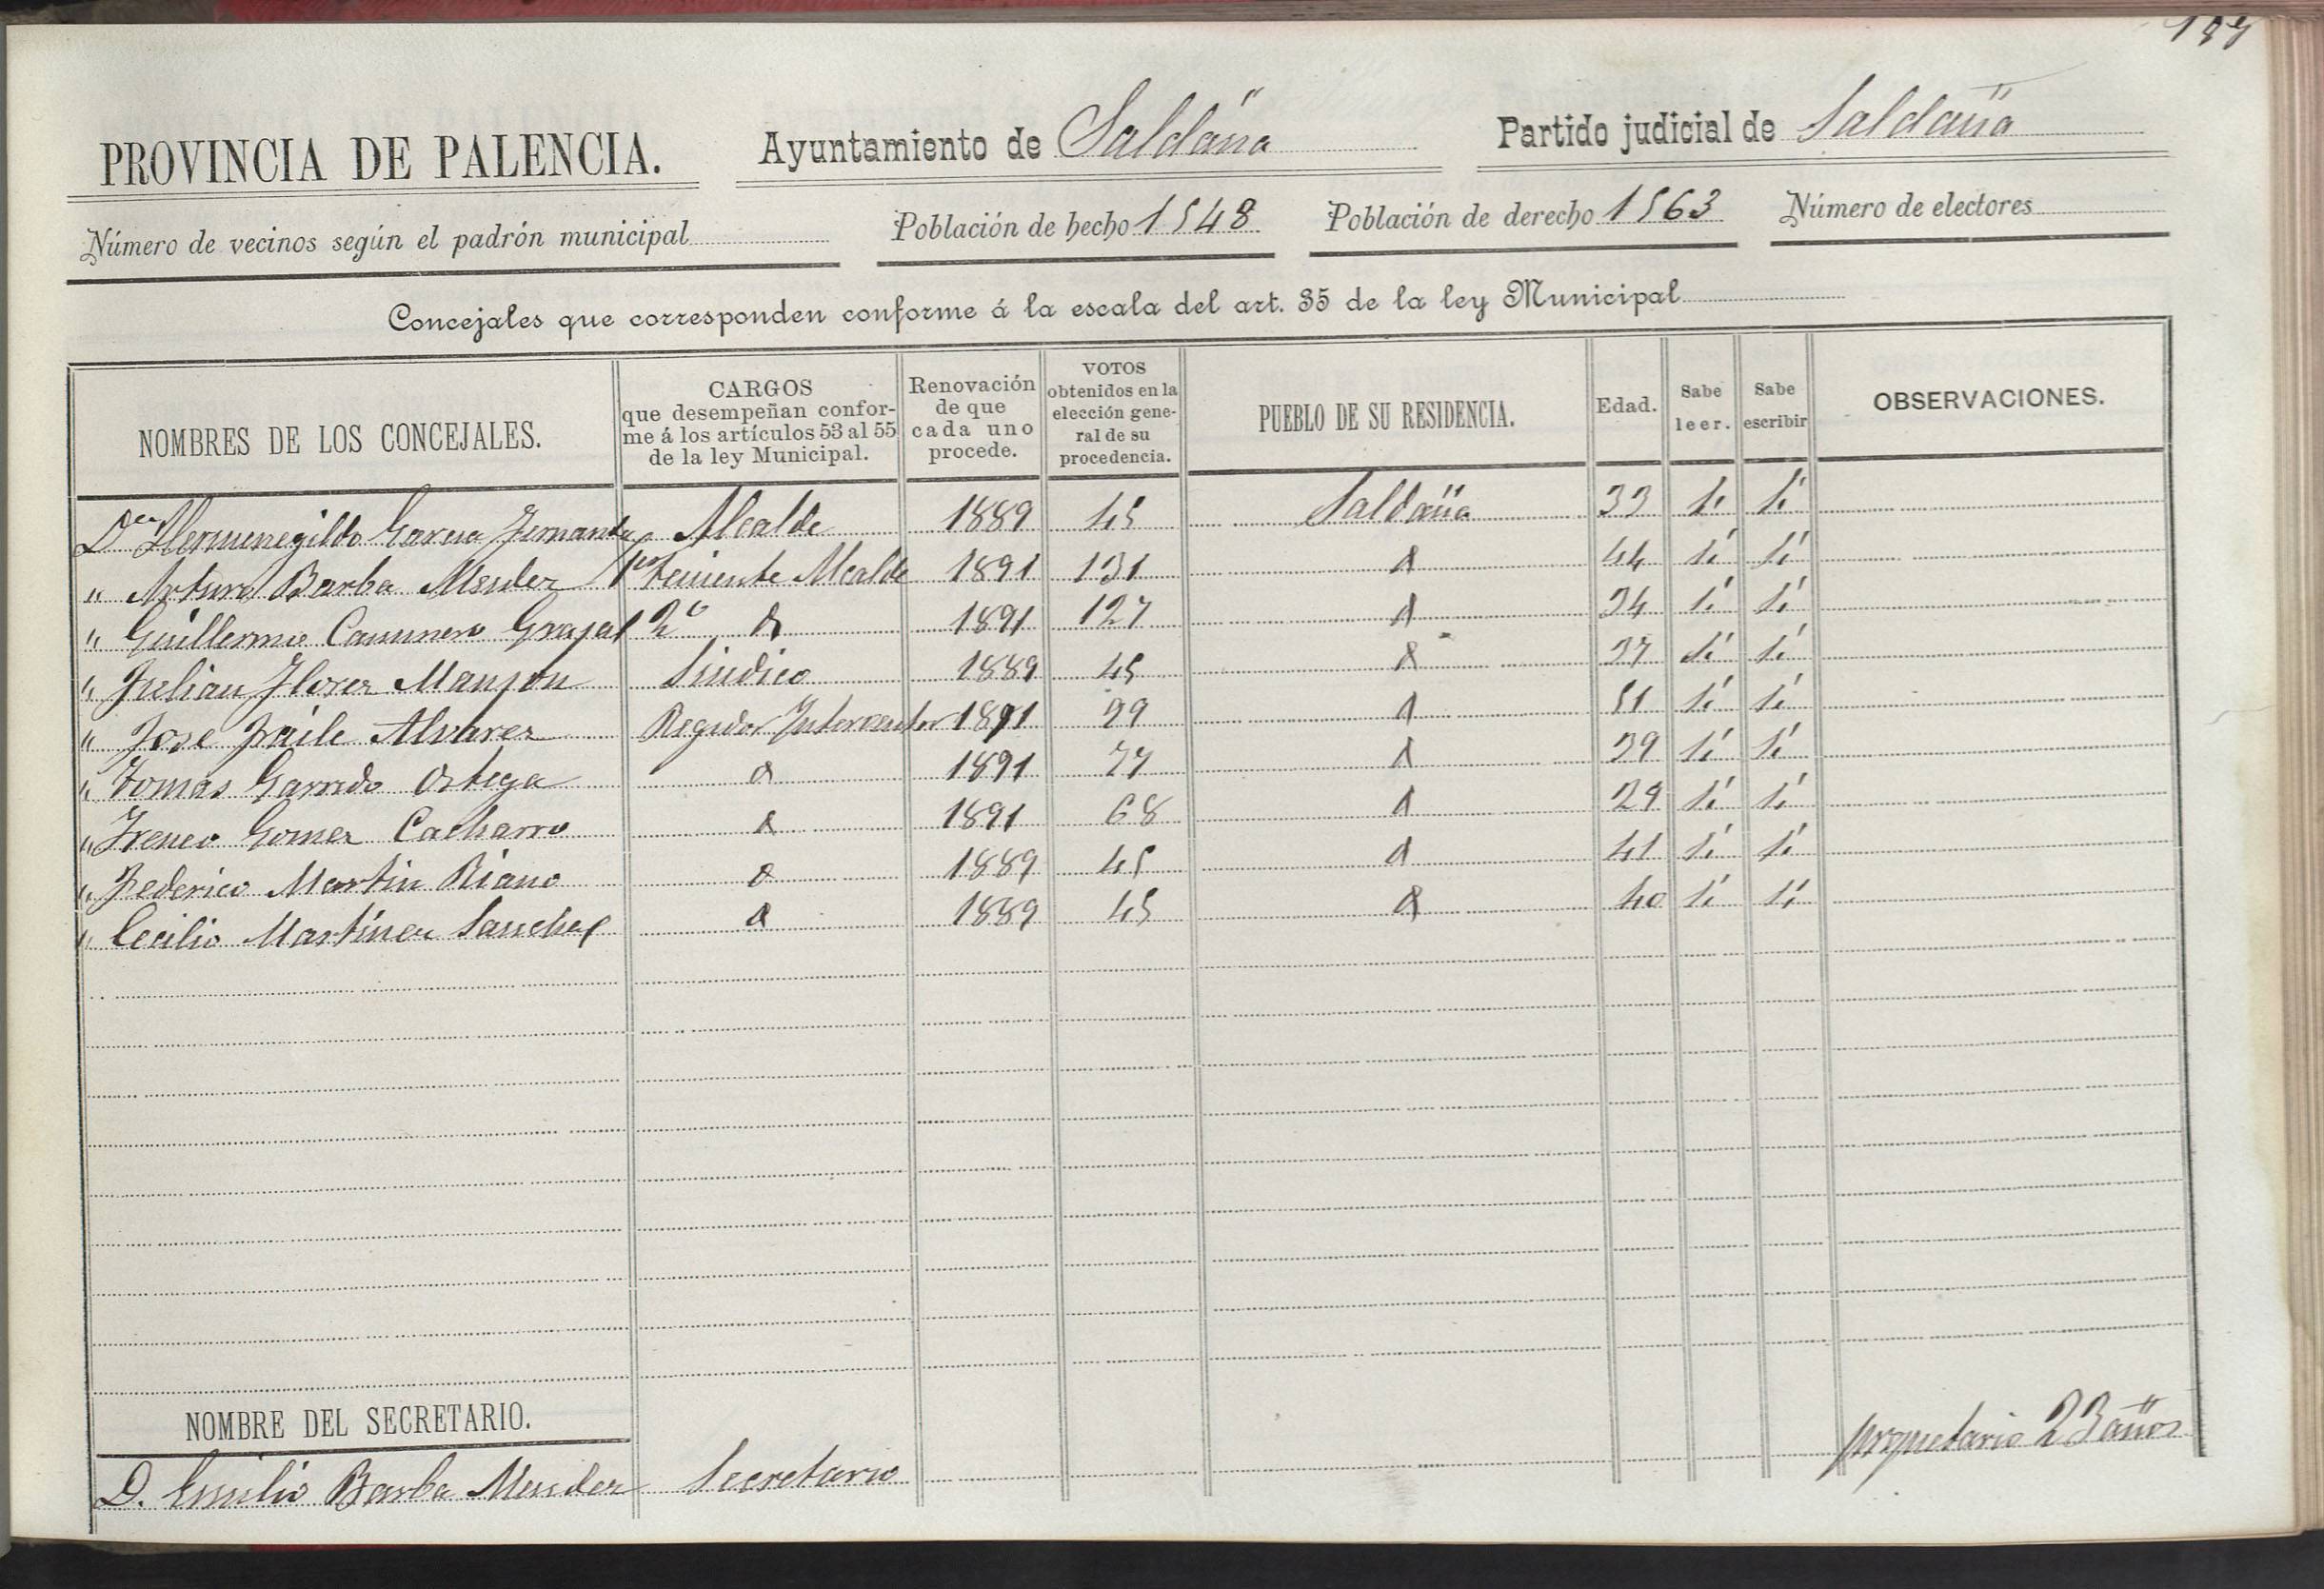 189
PROVINCIA DE PALENCIA. Ayuntamiento de Saldaña Partido judicial de Saldaña
Número de vecinos según el padrón municipal Población de hecho 1548 Población de derecho 1563 Número de electores
Concejales que corresponden conforme á la escala del art. 35 de la ley Municipal
NOMBRES DE LOS CONCEJALES. CARGOS que desempeñan conforme á los artículos 53 al 55 de la ley Municipal. Renovación de que cada uno procede. VOTOS obtenidos en la elección general de su procedencia. PUEBLO DE SU RESIDENCIA. Edad. Sabe leer. Sabe escribir OBSERVACIONES.
Dn Hermenegildo Garcia Fernandez Alcalde 1889 45 Saldaña 33 Si Si
" Arturo Barba Mender 1er teniente Alcalde 1891 131 d 44 Si Si
" Guillermo Caminero Grajal 2º d 1891 127 d 34 Si Si
" Julian Florez Manjon Sindico 1889 45 d 37 Si Si
" Jose Fraile Alvarez Regidor Interventor 1891 99 d 51 Si Si
" Tomás Garrido Ortega d 1891 77 d 39 Si Si
" Ireneo Gomez Cacharro d 1891 68 d 29 Si Si
" Federico Martin Riano d 1889 45 d 41 Si Si
" Cecilio Martínez Sanchez d 1889 45 d 40 Si Si
NOMBRE DEL SECRETARIO.
D. Emilio Barba Mender Secretario propietario 23 años